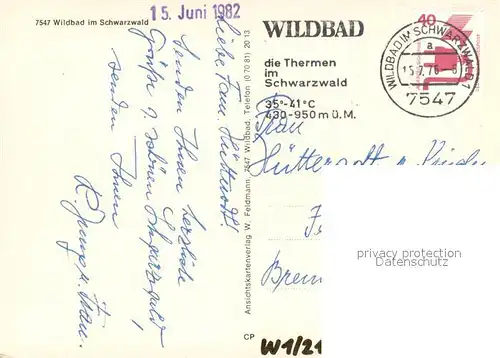 7547 Wildbad im Schwarzwald
15. Juni 1982
Liebe Frau Hüttenrott!
Senden Ihnen herzliche
Grüße v. schönen Schwarzwald
senden Ihnen
K. u. Frau.
Ansichtskartenverlag W. Feldmann, 7547 Wildbad, Telefon (0 70 81) 20 13
CP
WILDBAD
die Thermen
im
Schwarzwald
35°-41°C
430-950 m ü.M.
40
WILDBAD IM SCHWARZWALD 1
a
7547
Frau
Bremen
privacy protection
Datenschutz
W1/21